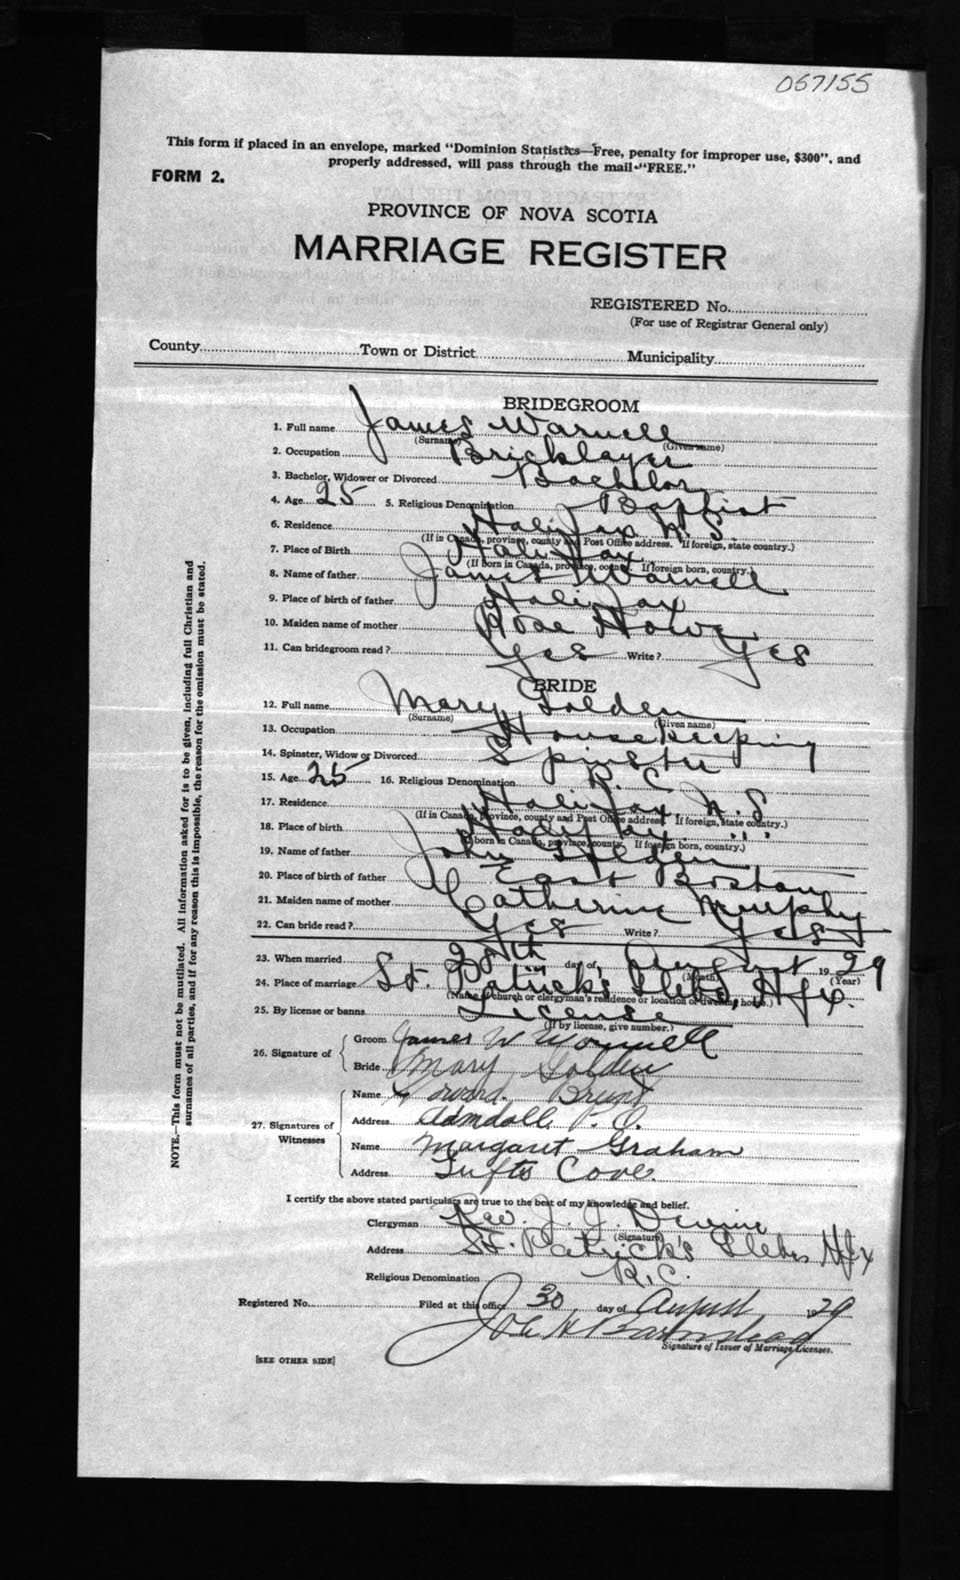 057155
This form if placed in an envelope, marked "Dominion Statistics—Free, penalty for improper use, $300", and
properly addressed, will pass through the mail "FREE."
FORM 2.
PROVINCE OF NOVA SCOTIA
MARRIAGE REGISTER
REGISTERED No.
(For use of Registrar General only)
County Town or District Municipality
BRIDEGROOM
1. Full name James Warnell
(Surname) (Given name)
2. Occupation Bricklayer
3. Bachelor, Widower or Divorced Bachelor
4. Age 25 5. Religious Denomination Baptist
6. Residence Halifax N.S.
(If in Canada, province, county and Post Office address. If foreign, state country.)
7. Place of Birth Halifax
(If born in Canada, province, county. If foreign born, country.)
8. Name of father James Warnell
9. Place of birth of father Halifax
10. Maiden name of mother Rose Howe
11. Can bridegroom read? Yes Write? Yes
BRIDE
12. Full name Mary Golden
(Surname) (Given name)
13. Occupation Housekeeping
14. Spinster, Widow or Divorced Spinster
15. Age 25 16. Religious Denomination R.C.
17. Residence Halifax, N.S
(If in Canada, province, county and Post Office address. If foreign, state country.)
18. Place of birth Halifax " "
(If born in Canada, province, county. If foreign born, country.)
19. Name of father John Golden
20. Place of birth of father East Boston
21. Maiden name of mother Catherine Murphy
22. Can bride read? Yes Write? Yes
23. When married 28th day of August 1929
(Month) (Year)
24. Place of marriage St. Patrick's Glebe, Hfx.
(Name of church or clergyman's residence or location of dwelling house.)
25. By license or banns License
(If by license, give number.)
26. Signature of
Groom James W Wornell
Bride Mary Golden
27. Signatures of Witnesses
Name Brunt
Address Armdale P.O.
Name Margaret Graham
Address Tufts Cove.
I certify the above stated particulars are true to the best of my knowledge and belief.
Clergyman Rev. J. J. Devine
(Signature)
Address St. Patrick's Glebe, Hfx
Religious Denomination R.C.
Registered No. Filed at this office 30 day of August 1929
Signature of Issuer of Marriage Licenses.
[SEE OTHER SIDE]
NOTE.—This form must not be mutilated. All information asked for is to be given, including full Christian and
surnames of all parties, and if for any reason this is impossible, the reason for the omission must be stated.